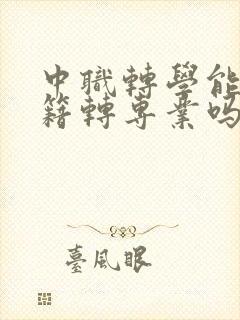 中職轉學能
籍轉專業嗎
臺風眼